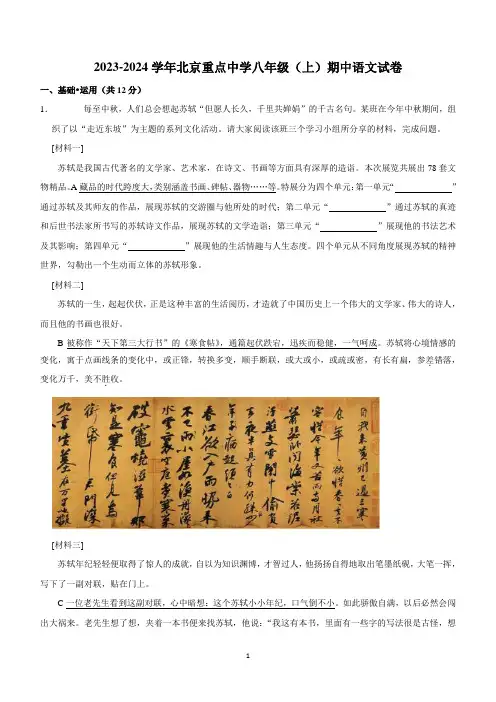 2023-2024 学年北京重点中学八年级（上）期中语文试卷
一、基础•运用（共 12 分）
1． 每至中秋，人们总会想起苏轼“但愿人长久，千里共婵娟”的千古名句。某班在今年中秋期间，组
织了以“走近东坡”为主题的系列文化活动。请大家阅读该班三个学习小组所分享的材料，完成问题。
[材料一]
苏轼是我国古代著名的文学家、艺术家，在诗文、书画等方面具有深厚的造诣。本次展览共展出 78 套文
物精品。A 藏品的时代跨度大，类别涵盖书画、碑帖、器物……等。特展分为四个单元：第一单元“ ”
通过苏轼及其师友的作品，展现苏轼的交游圈与他所处的时代；第二单元“ ”通过苏轼的真迹
和后世书法家所书写的苏轼诗文作品，展现苏轼的文学造诣；第三单元“ ”展现他的书法艺术
及其影响；第四单元“ ”展现他的生活情趣与人生态度。四个单元从不同角度展现苏轼的精神
世界，勾勒出一个生动而立体的苏轼形象。
[材料二]
苏轼的一生，起起伏伏，正是这种丰富的生活阅历，才造就了中国历史上一个伟大的文学家、伟大的诗人，
而且他的书画也很好。
B 被称作“天下第三大行书”的《寒食帖》，通篇起伏跌宕，迅疾而稳健，一气呵成。苏轼将心境情感的
变化，寓于点画线条的变化中，或正锋，转换多变，顺手断联，或大或小，或疏或密，有长有扁，参差错落，
变化万千，美不胜收。
自我來黃州已過三寒
食年年欲惜春春去不
容惜今年又苦雨兩月秋
蕭瑟臥聞海棠花泥
汙燕支雪闇中偷負
去夜半真有力何殊
年子病起須已白
春江欲入戶雨勢來
不已雨小屋如漁舟濛濛
水雲裏空庖煮寒菜
破竈燒濕葦那
知是寒食但見烏
銜帋君門深
九重墳墓在万里也擬
[材料三]
苏轼年纪轻轻便取得了惊人的成就，自以为知识渊博，才智过人，他扬扬自得地取出笔墨纸砚，大笔一挥，
写下了一副对联，贴在门上。
C 一位老先生看到这副对联，心中暗想：这个苏轼小小年纪，口气倒不小。如此骄傲自满，以后必然会闯
出大祸来。老先生想了想，夹着一本书便来找苏轼，他说：“我这有本书，里面有一些字的写法很是古怪，想
1